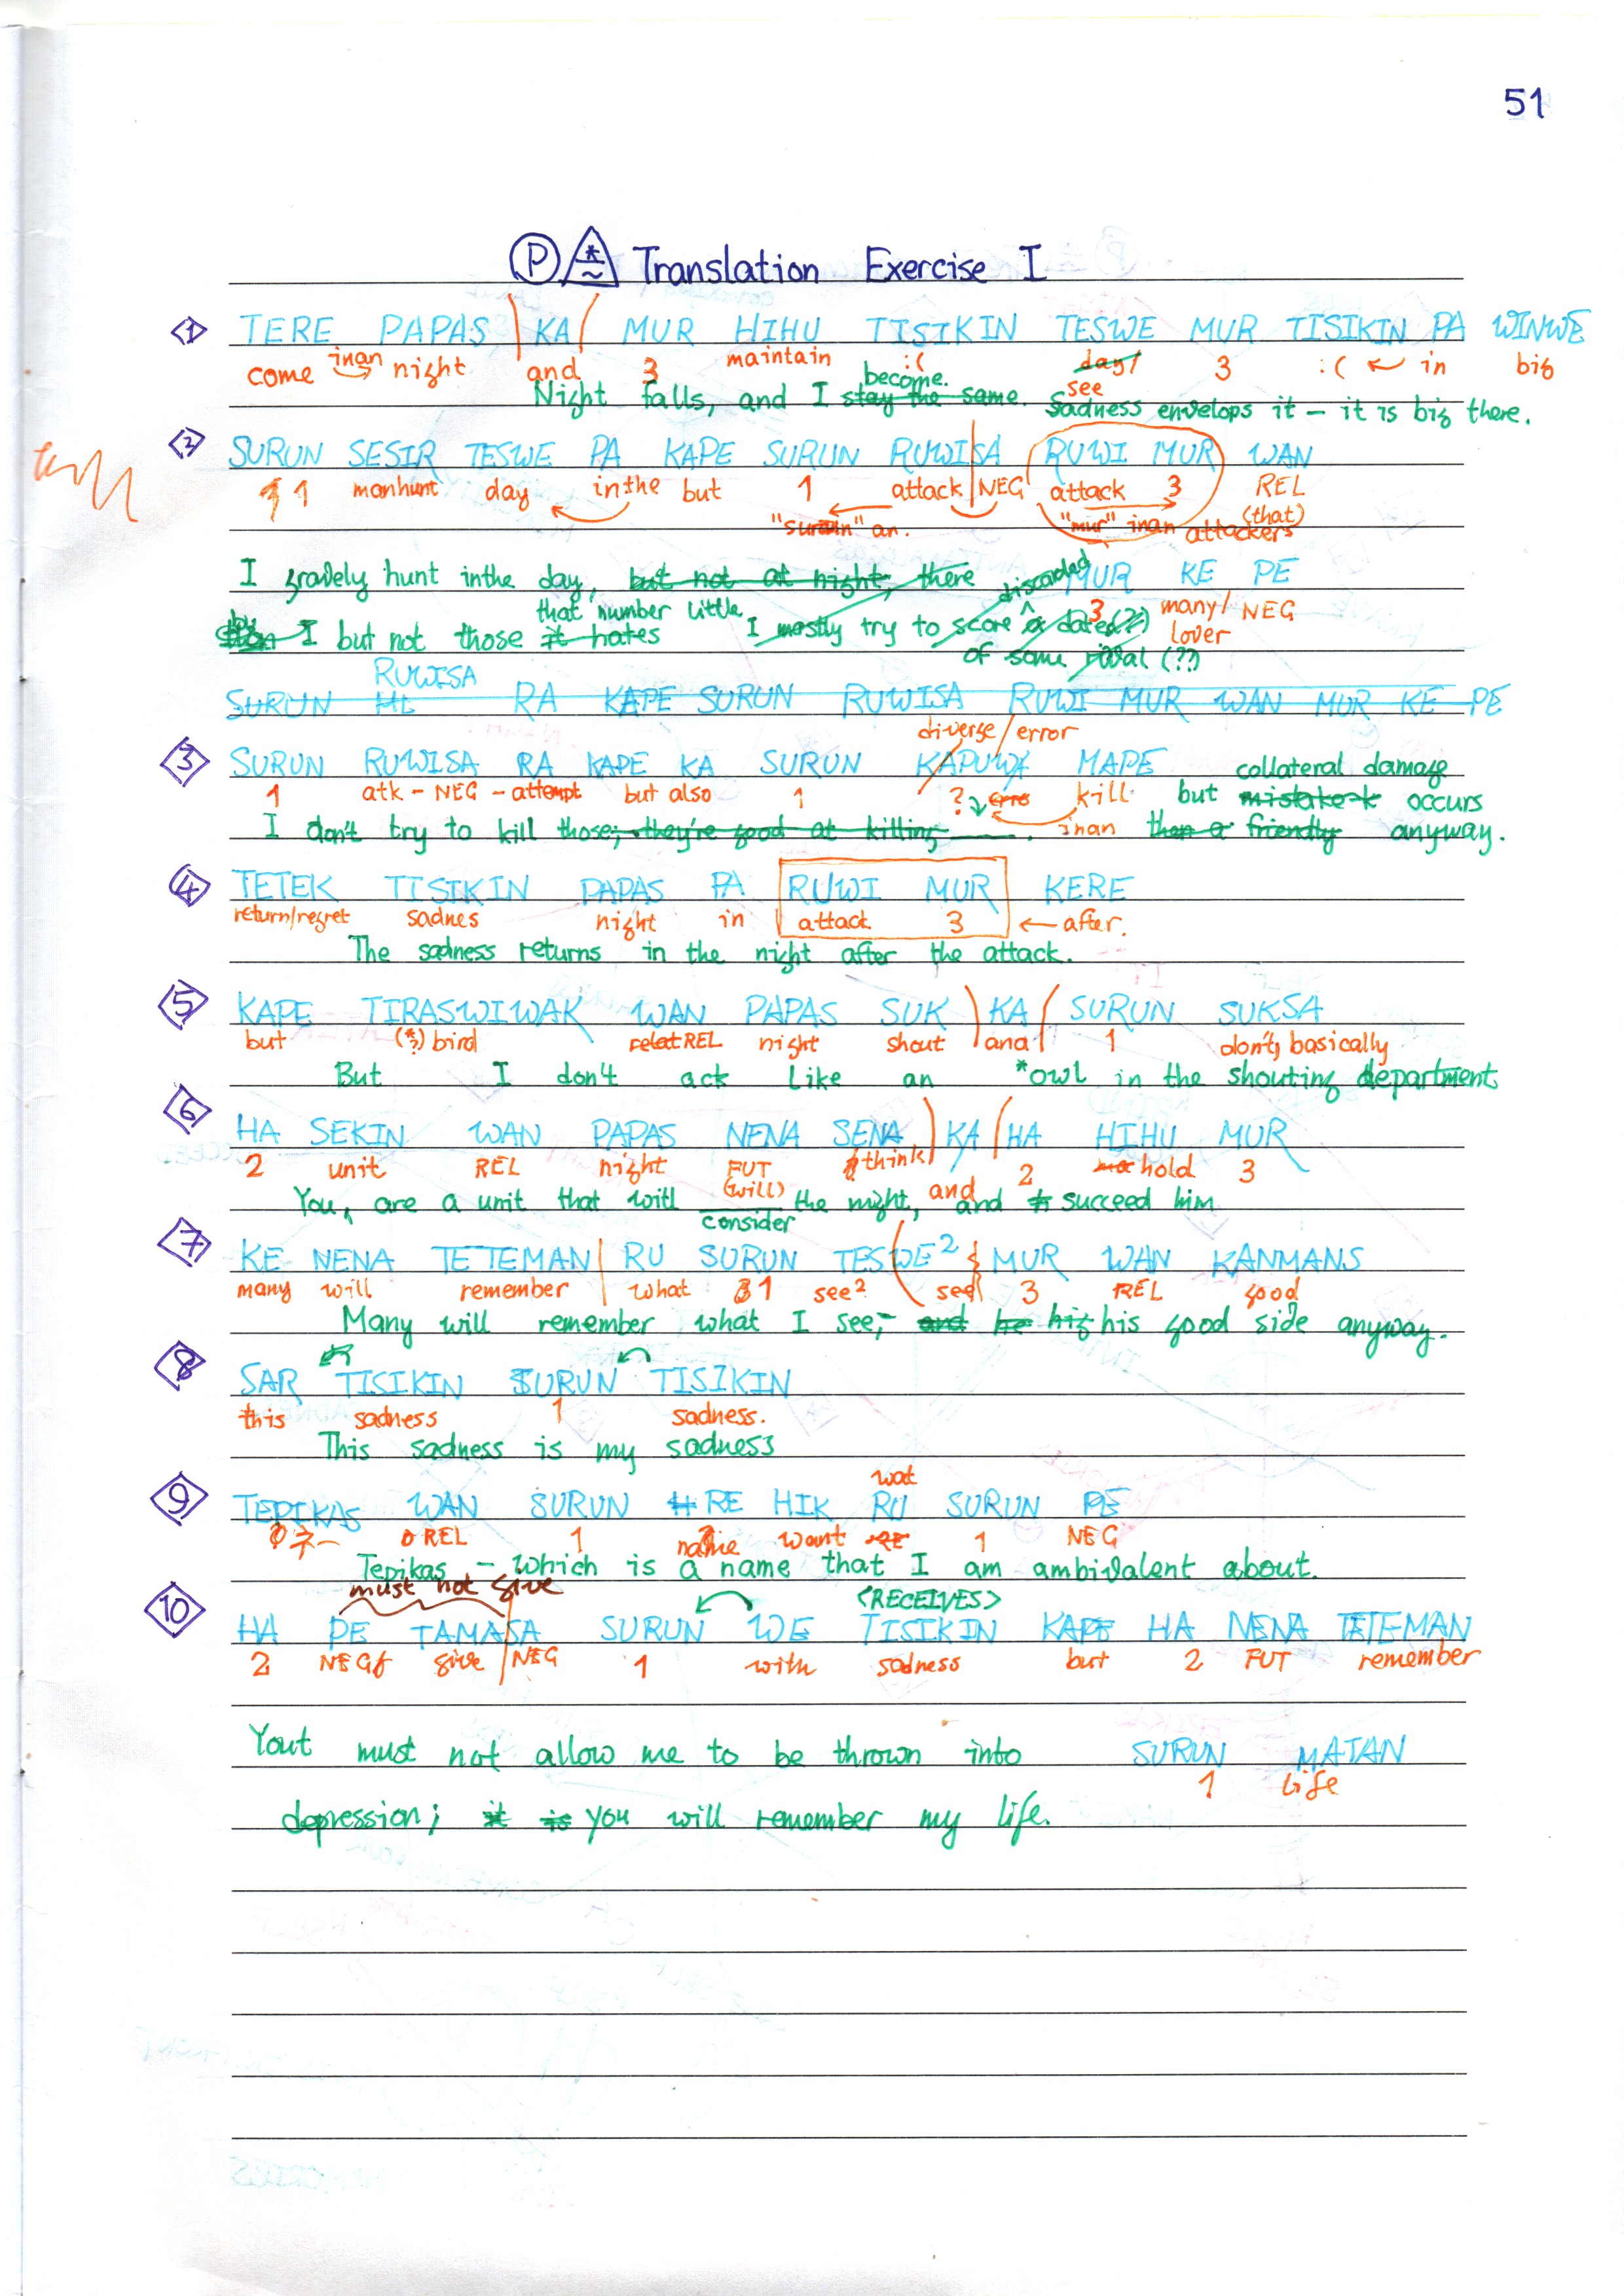 51
P Translation Exercise I
1 TERE PAPAS KA MUR HIHU TISIKIN TESWE MUR TISIKIN PA WINWE
come inan night and 3 maintain :( day/ see 3 :( ← in big
become.
Night falls, and I stay the same. Sadness envelops it – it is big there.
2 SURUN SESIR TESWE PA KAPE SURUN RUWISA RUWI MUR WAN
1 manhunt day in the but 1 attack NEG attack 3 REL
"surun" an. "mur" inan attackers (that)
I gravely hunt in the day, but not at night, there discarded MUR KE PE
that number little 3 many/ NEG
by I but not those it hates I mostly try to score a dates(?) lover
of some rival (??)
RUWISA
SURUN RA KAPE SURUN RUWISA RUWI MUR WAN MUR KE PE
diverse/error
3 SURUN RUWISA RA KAPE KA SURUN KAPUWA MAPE collateral damage
1 atk – NEG – attempt but also 1 ? kill but mistake occurs
I don't try to kill those; they're good at killing inan friendly anyway.
4 TETEK TISIKIN PAPAS PA RUWI MUR KERE
return/regret sadnes night in attack 3 ← after.
The sadness returns in the night after the attack.
5 KAPE TIRASWIWAK WAN PAPAS SUK KA SURUN SUKSA
but (*?) bird REL night shout and 1 don't, basically
But I don't act like an *owl in the shouting department
6 HA SEKIN WAN PAPAS NENA SENA KA HA HIHU MUR
2 unit REL night FUT think and 2 hold 3
(will)
You are a unit that will consider the night, and succeed him
7 KE NENA TETEMAN RU SURUN TESWE² MUR WAN KANMANS
many will remember what 1 see² see 3 REL good
Many will remember what I see,– and he his his good side anyway.
8 SAR TISIKIN SURUN TISIKIN
this sadness 1 sadness.
This sadness is my sadness
wat
9 TEPIKAS WAN SURUN RE HIK RU SURUN PE
REL 1 name want 1 NEG
Tepikas – which is a name that I am ambivalent about.
must not give <RECEIVES>
10 HA PE TAMASA SURUN WE TISIKIN KAPE HA NENA TETEMAN
2 NEG give NEG 1 with sadness but 2 FUT remember
Yout must not allow me to be thrown into SURUN MATAN
1 life
depression; it is you will remember my life.